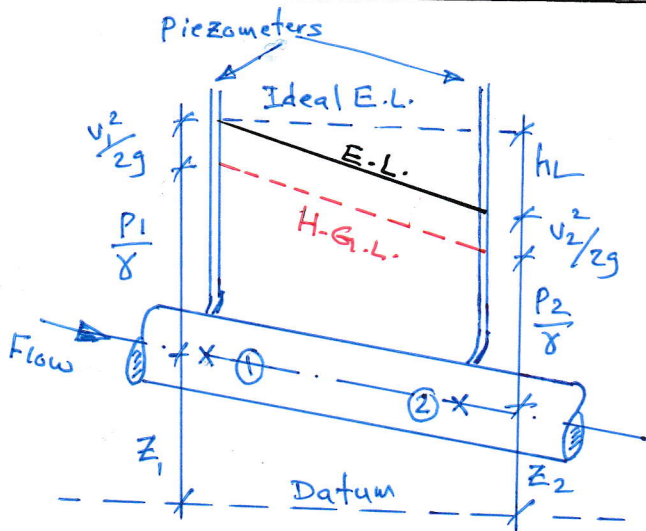 Piezometers
Ideal E.L.
v₁²/2g
E.L.
hL
H-G.L.
v₂²/2g
P1/γ
P2/γ
Flow
1
2
Z₁
Datum
Z2